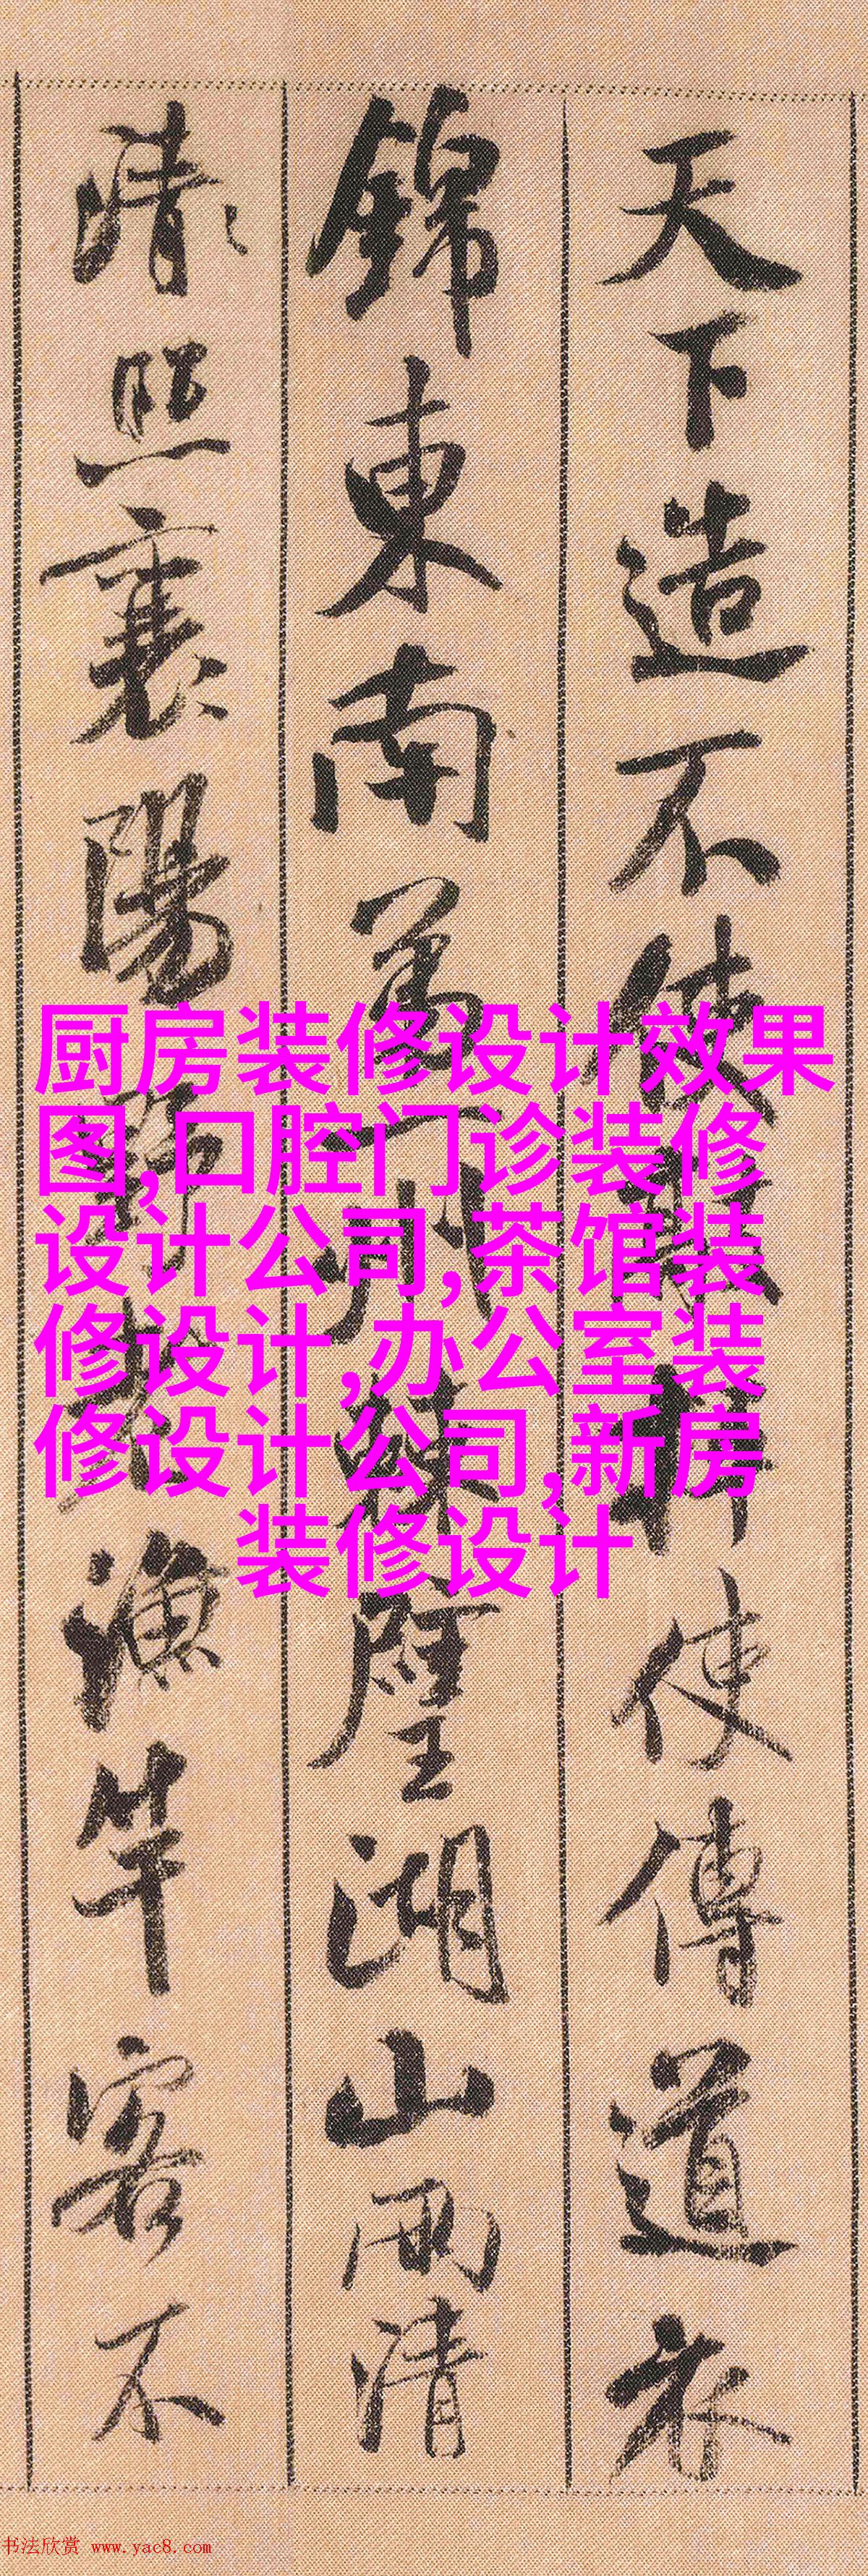 天下造不使敲枰使傳道衣
錦東南第一州棘璧湖山兩清
清照襄陽野老漁竿客不
厨房装修设计效果
图,口腔门诊装修
设计公司,茶馆装
修设计,办公室装
修设计公司,新房
装修设计
书法欣赏 www.yac8.com